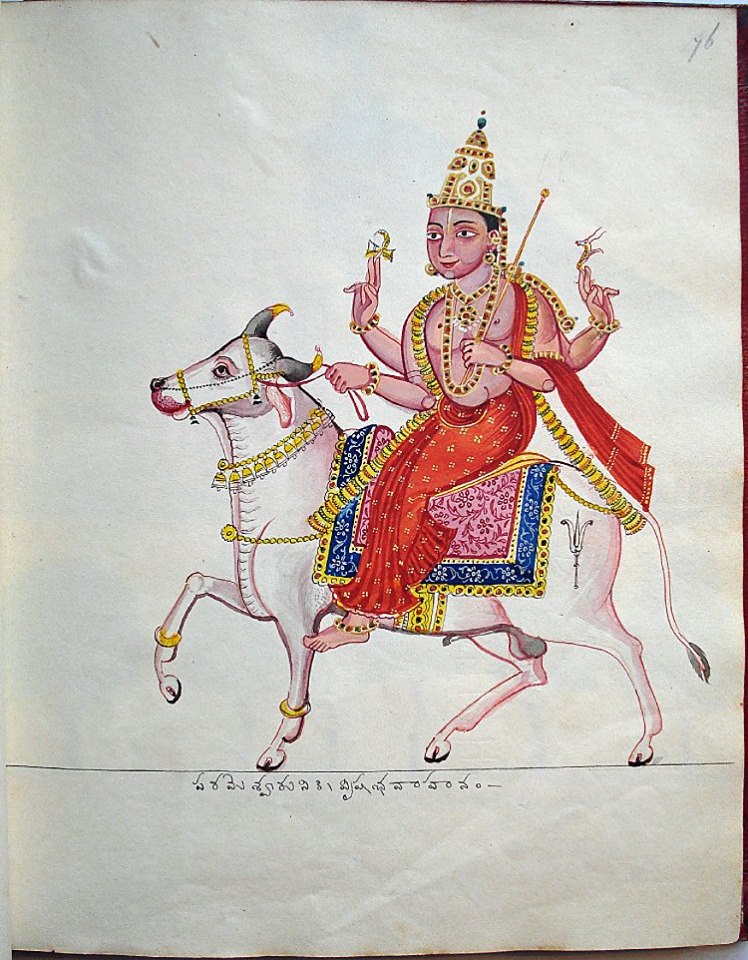 76
పరమేశ్వరునికి వృషభవాహనం—